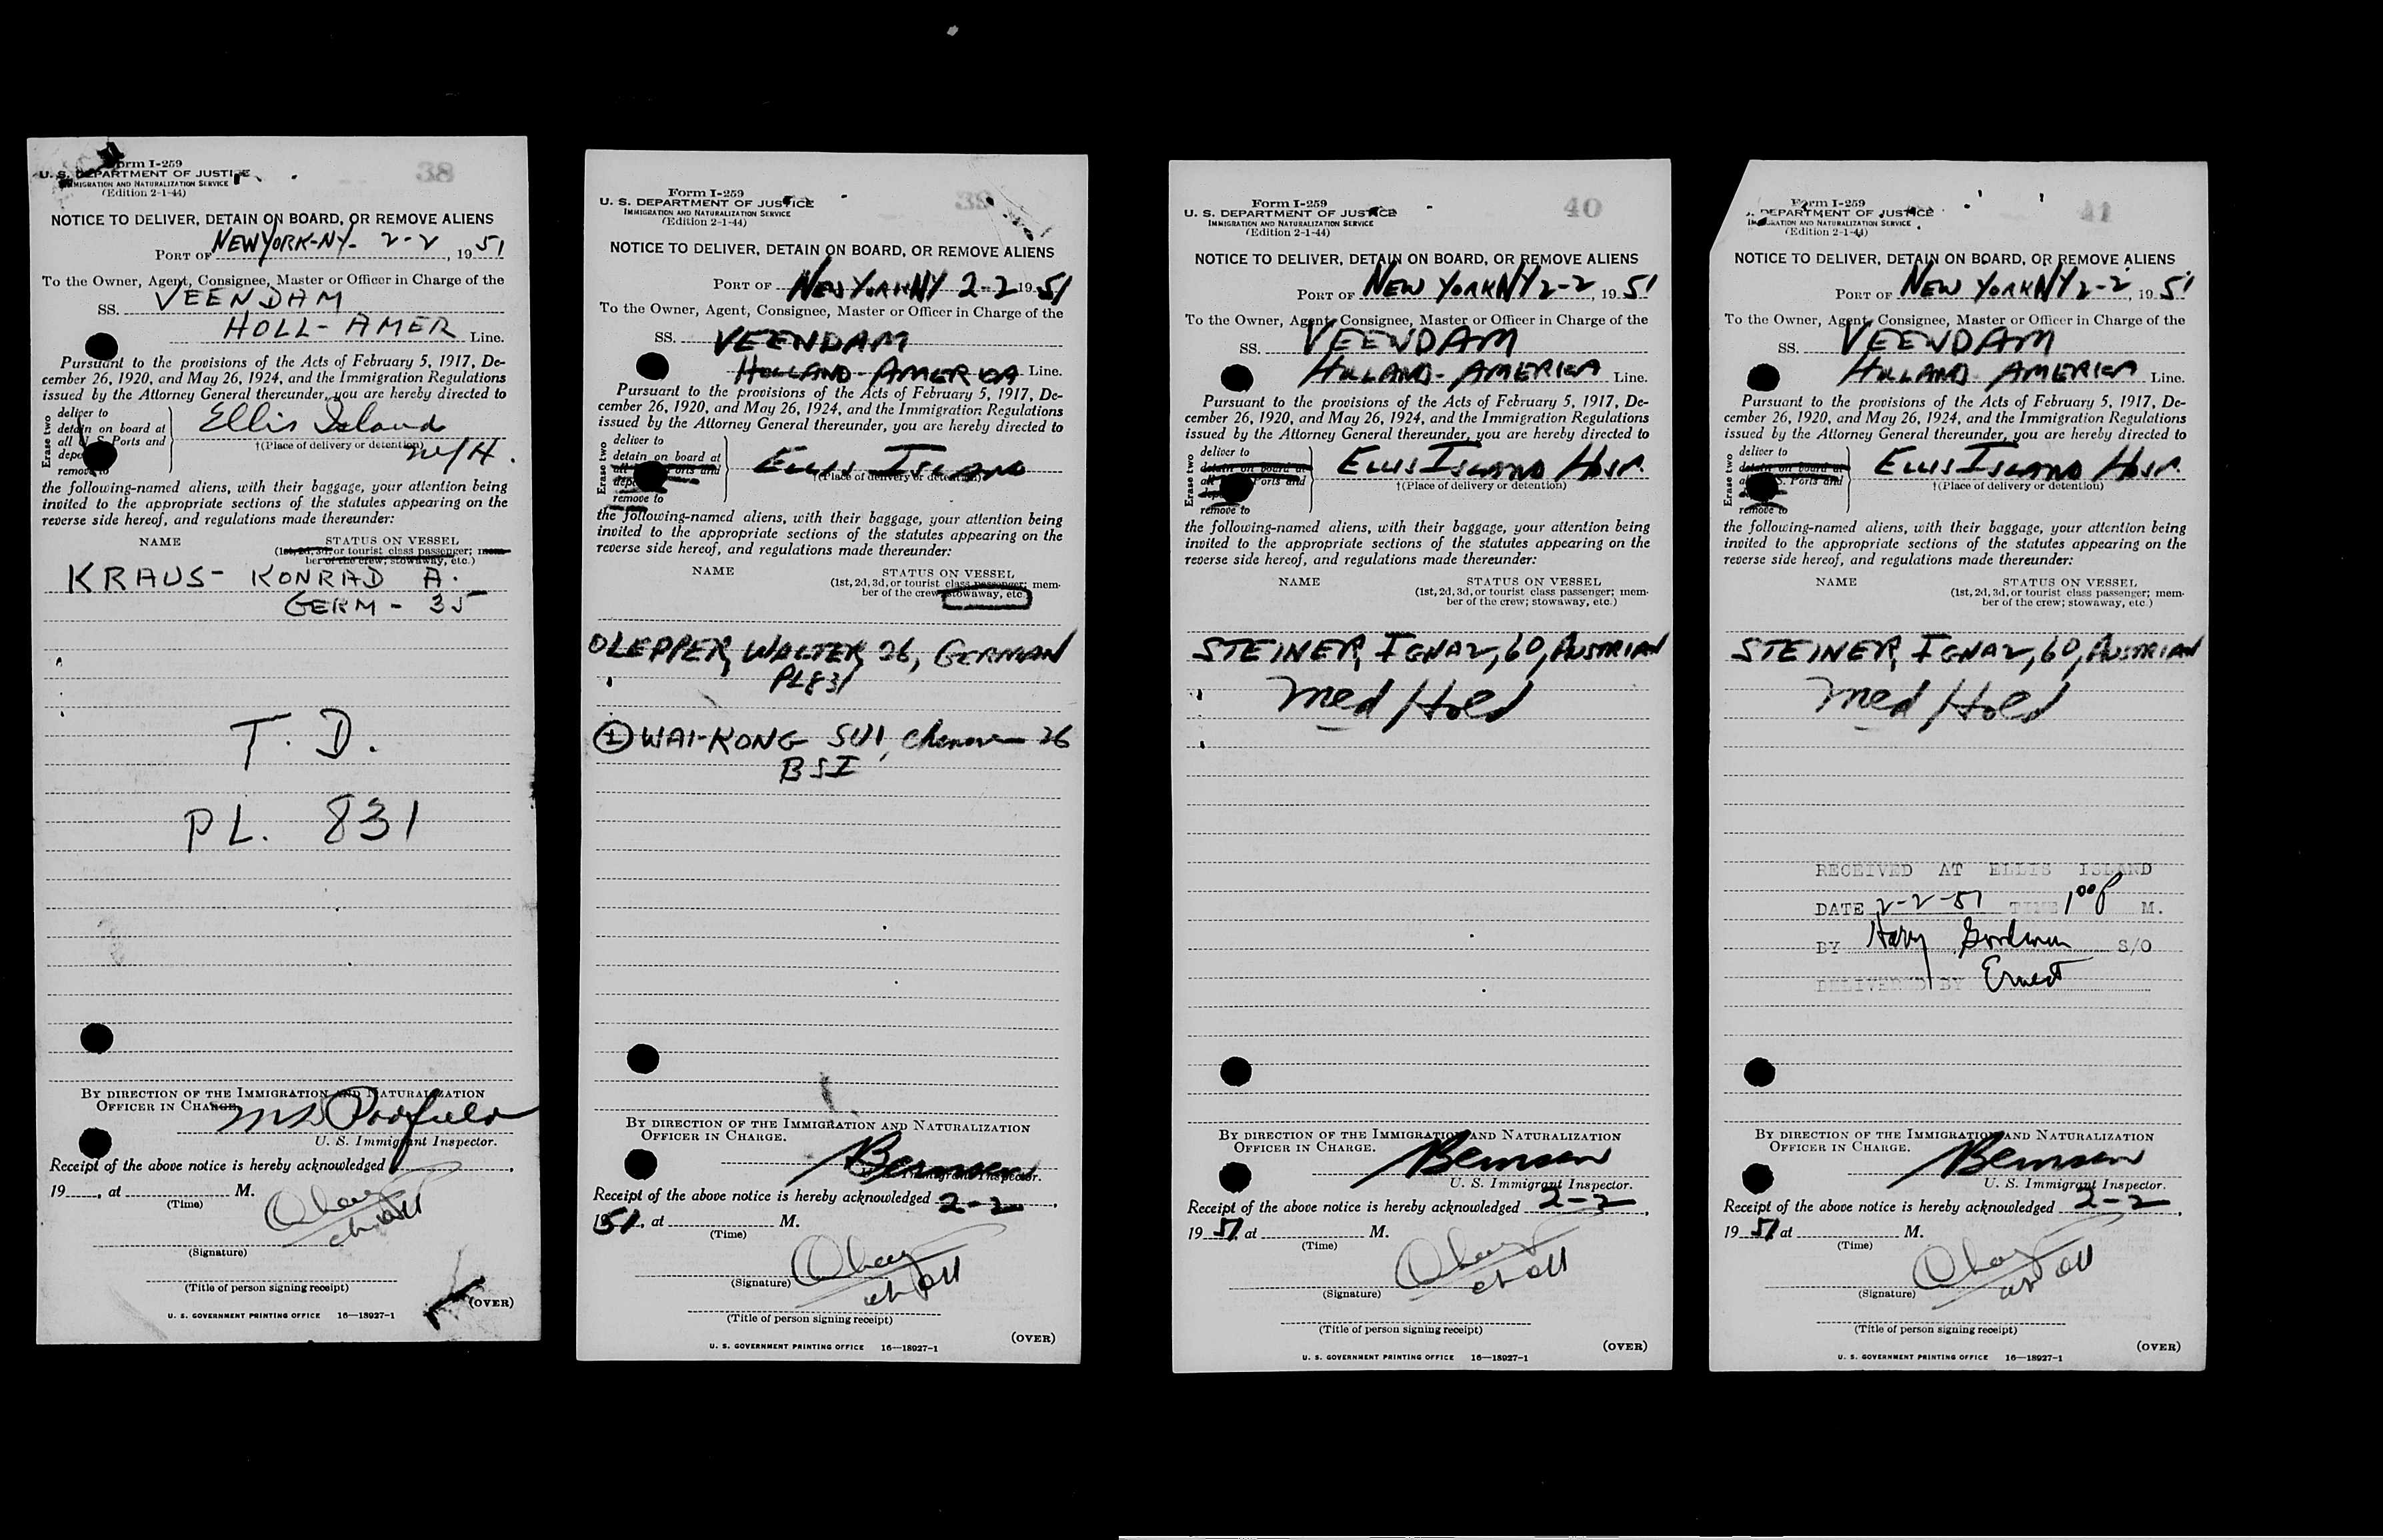 Form I-259
U. S. DEPARTMENT OF JUSTICE
IMMIGRATION AND NATURALIZATION SERVICE
(Edition 2-1-44)
38
NOTICE TO DELIVER, DETAIN ON BOARD, OR REMOVE ALIENS
PORT OF NEW YORK-NY- 2-2, 1951
To the Owner, Agent, Consignee, Master or Officer in Charge of the
SS. VEENDAM
HOLL-AMER Line.
Pursuant to the provisions of the Acts of February 5, 1917, De-
cember 26, 1920, and May 26, 1924, and the Immigration Regulations
issued by the Attorney General thereunder, you are hereby directed to
Erase two
deliver to
detain on board at
all U. S. Ports and
remove to
Ellis Island
†(Place of delivery or detention)
the following-named aliens, with their baggage, your attention being
invited to the appropriate sections of the statutes appearing on the
reverse side hereof, and regulations made thereunder:
NAME STATUS ON VESSEL
(1st, 2d, 3d, or tourist class passenger; mem-
ber of the crew; stowaway, etc.)
KRAUS- KONRAD A.
GERM - 35
T. D.
PL. 831
BY DIRECTION OF THE IMMIGRATION AND NATURALIZATION
OFFICER IN CHARGE
U. S. Immigrant Inspector.
Receipt of the above notice is hereby acknowledged
19 , at M.
(Time)
(Signature)
(Title of person signing receipt)
(OVER)
U. S. GOVERNMENT PRINTING OFFICE 16—18927-1
Form I-259
U. S. DEPARTMENT OF JUSTICE
IMMIGRATION AND NATURALIZATION SERVICE
(Edition 2-1-44)
39
NOTICE TO DELIVER, DETAIN ON BOARD, OR REMOVE ALIENS
PORT OF NEW YORK NY 2-2 1951
To the Owner, Agent, Consignee, Master or Officer in Charge of the
SS. VEENDAM
HOLLAND-AMERICA Line.
Pursuant to the provisions of the Acts of February 5, 1917, De-
cember 26, 1920, and May 26, 1924, and the Immigration Regulations
issued by the Attorney General thereunder, you are hereby directed to
Erase two
deliver to
detain on board at
all Ports and
remove to
ELLIS ISLAND
†(Place of delivery or detention)
the following-named aliens, with their baggage, your attention being
invited to the appropriate sections of the statutes appearing on the
reverse side hereof, and regulations made thereunder:
NAME STATUS ON VESSEL
(1st, 2d, 3d, or tourist class passenger; mem-
ber of the crew; stowaway, etc.)
LEPPER, WALTER, 26, GERMAN
PL831
① WAI-KONG SUI, Chinese 26
BSI
BY DIRECTION OF THE IMMIGRATION AND NATURALIZATION
OFFICER IN CHARGE.
Immigrant Inspector.
Receipt of the above notice is hereby acknowledged 2-2,
1951, at M.
(Time)
(Signature)
(Title of person signing receipt)
(OVER)
U. S. GOVERNMENT PRINTING OFFICE 16—18927-1
Form I-259
U. S. DEPARTMENT OF JUSTICE
IMMIGRATION AND NATURALIZATION SERVICE
(Edition 2-1-44)
40
NOTICE TO DELIVER, DETAIN ON BOARD, OR REMOVE ALIENS
PORT OF NEW YORK NY 2-2, 1951
To the Owner, Agent, Consignee, Master or Officer in Charge of the
SS. VEENDAM
HOLLAND-AMERICA Line.
Pursuant to the provisions of the Acts of February 5, 1917, De-
cember 26, 1920, and May 26, 1924, and the Immigration Regulations
issued by the Attorney General thereunder, you are hereby directed to
Erase two
deliver to
detain on board at
all Ports and
remove to
ELLIS ISLAND HOSP.
†(Place of delivery or detention)
the following-named aliens, with their baggage, your attention being
invited to the appropriate sections of the statutes appearing on the
reverse side hereof, and regulations made thereunder:
NAME STATUS ON VESSEL
(1st, 2d, 3d, or tourist class passenger; mem-
ber of the crew; stowaway, etc.)
STEINER, IGNAZ, 60, AUSTRIAN
Med Hold
BY DIRECTION OF THE IMMIGRATION AND NATURALIZATION
OFFICER IN CHARGE.
U. S. Immigrant Inspector.
Receipt of the above notice is hereby acknowledged 2-2,
1951, at M.
(Time)
(Signature)
(Title of person signing receipt)
(OVER)
U. S. GOVERNMENT PRINTING OFFICE 16—18927-1
Form I-259
DEPARTMENT OF JUSTICE
IMMIGRATION AND NATURALIZATION SERVICE
(Edition 2-1-44)
41
NOTICE TO DELIVER, DETAIN ON BOARD, OR REMOVE ALIENS
PORT OF NEW YORK NY 2-2, 1951
To the Owner, Agent, Consignee, Master or Officer in Charge of the
SS. VEENDAM
HOLLAND AMERICA Line.
Pursuant to the provisions of the Acts of February 5, 1917, De-
cember 26, 1920, and May 26, 1924, and the Immigration Regulations
issued by the Attorney General thereunder, you are hereby directed to
Erase two
deliver to
detain on board at
S. Ports and
remove to
ELLIS ISLAND HOSP.
†(Place of delivery or detention)
the following-named aliens, with their baggage, your attention being
invited to the appropriate sections of the statutes appearing on the
reverse side hereof, and regulations made thereunder:
NAME STATUS ON VESSEL
(1st, 2d, 3d, or tourist class passenger; mem-
ber of the crew; stowaway, etc.)
STEINER, IGNAZ, 60, AUSTRIAN
Med Hold
RECEIVED AT ELLIS ISLAND
DATE 2-2-51 TIME 1 00 P M.
BY Harry Goodman S/O
DELIVERED BY Ernest
BY DIRECTION OF THE IMMIGRATION AND NATURALIZATION
OFFICER IN CHARGE.
U. S. Immigrant Inspector.
Receipt of the above notice is hereby acknowledged 2-2,
1951 at M.
(Time)
(Signature)
(Title of person signing receipt)
(OVER)
U. S. GOVERNMENT PRINTING OFFICE 16—18927-1